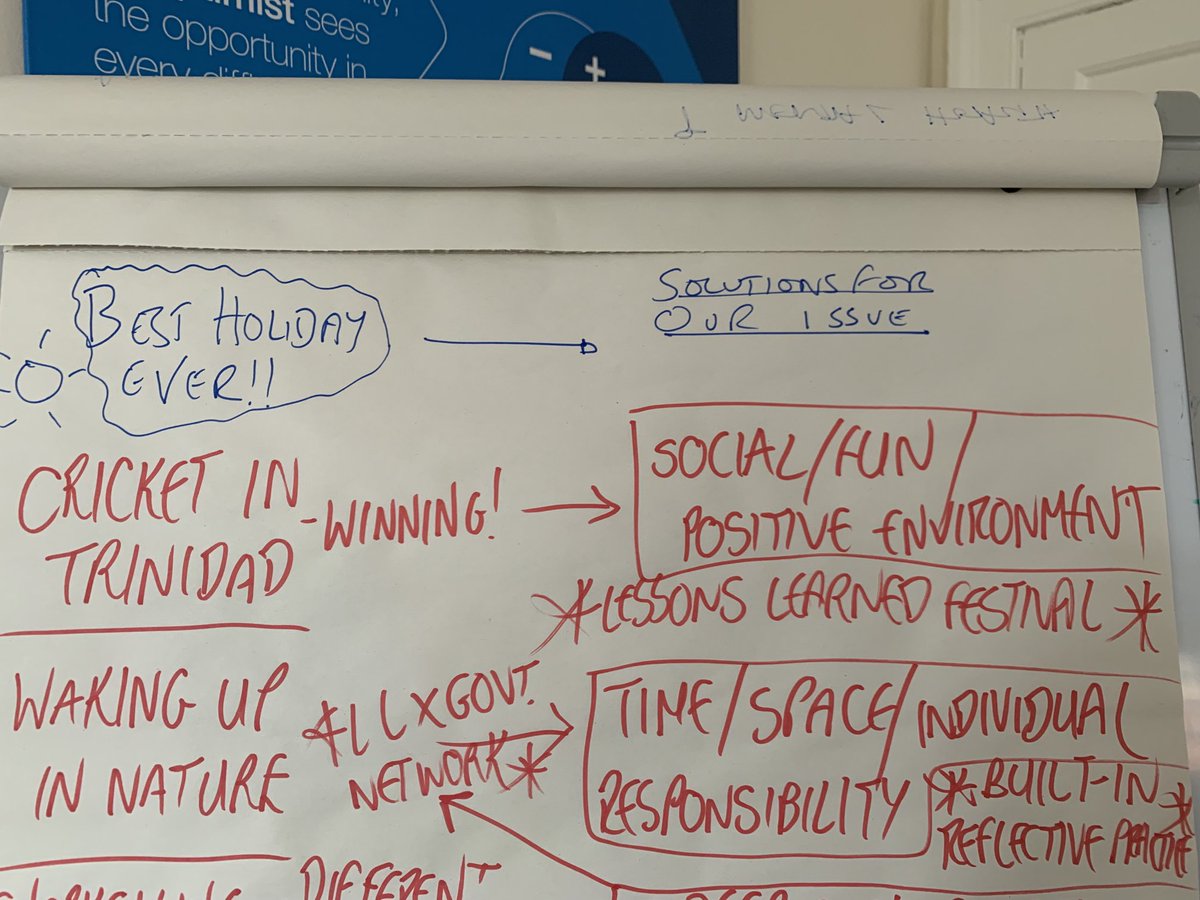 sees
the opportunity in
every
- +
MENTAL HEALTH
BEST HOLIDAY
EVER!!
SOLUTIONS FOR
OUR ISSUE
CRICKET IN
TRINIDAD
- WINNING!
SOCIAL/FUN/
POSITIVE ENVIRONMENT
*LESSONS LEARNED FESTIVAL *
WAKING UP
IN NATURE
*LL XGOVT.
NETWORK*
TIME/SPACE/INDIVIDUAL
RESPONSIBILITY
*BUILT-IN *
REFLECTIVE PRACTICE
DIFFERENT